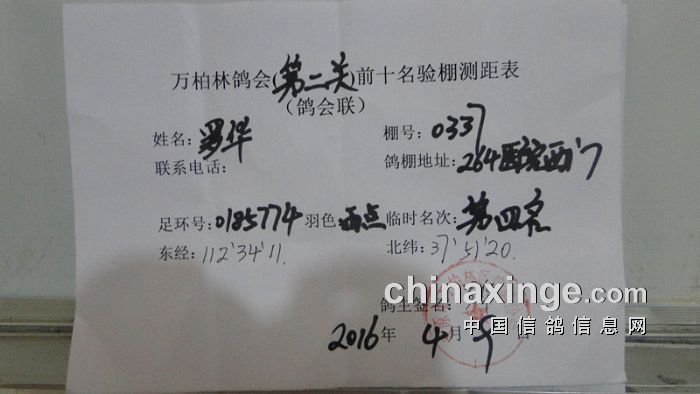 万柏林鸽会(第二关)前十名验棚测距表
（鸽会联）
姓名：罗华 棚号：0337
联系电话： 鸽棚地址：264医院西门
足环号：0185774 羽色：雨点 临时名次：第四名
东经：112°34'11. 北纬：37°51'20.
鸽主签名：
2016年4月5日
chinaxinge.com
中国信鸽信息网